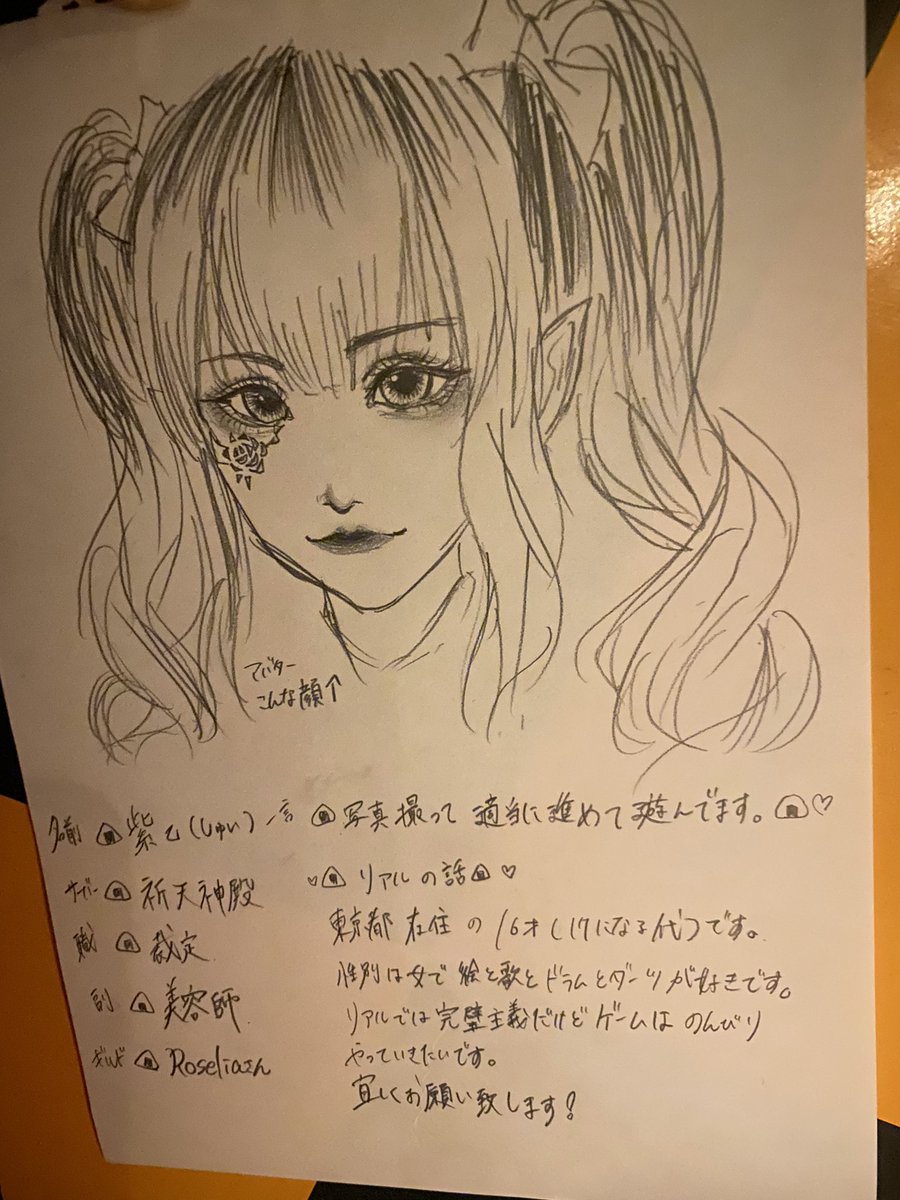 アバター
こんな顔↑
名前 🍙 紫乙(しゅい)
一言 🍙 写真撮って 適当に進めて遊んでます。🍙♡
サーバー 🍙 祈天神殿
職 🍙 裁定
副 🍙 美容師
ギルド 🍙 Roseliaさん
♡🍙 リアルの話🍙 ♡
東京都在住の16才(17になる代)です。
性別は女で絵と歌とドラムとダーツが好きです。
リアルでは完璧主義だけどゲームはのんびり
やっていきたいです。
宜しくお願い致します!